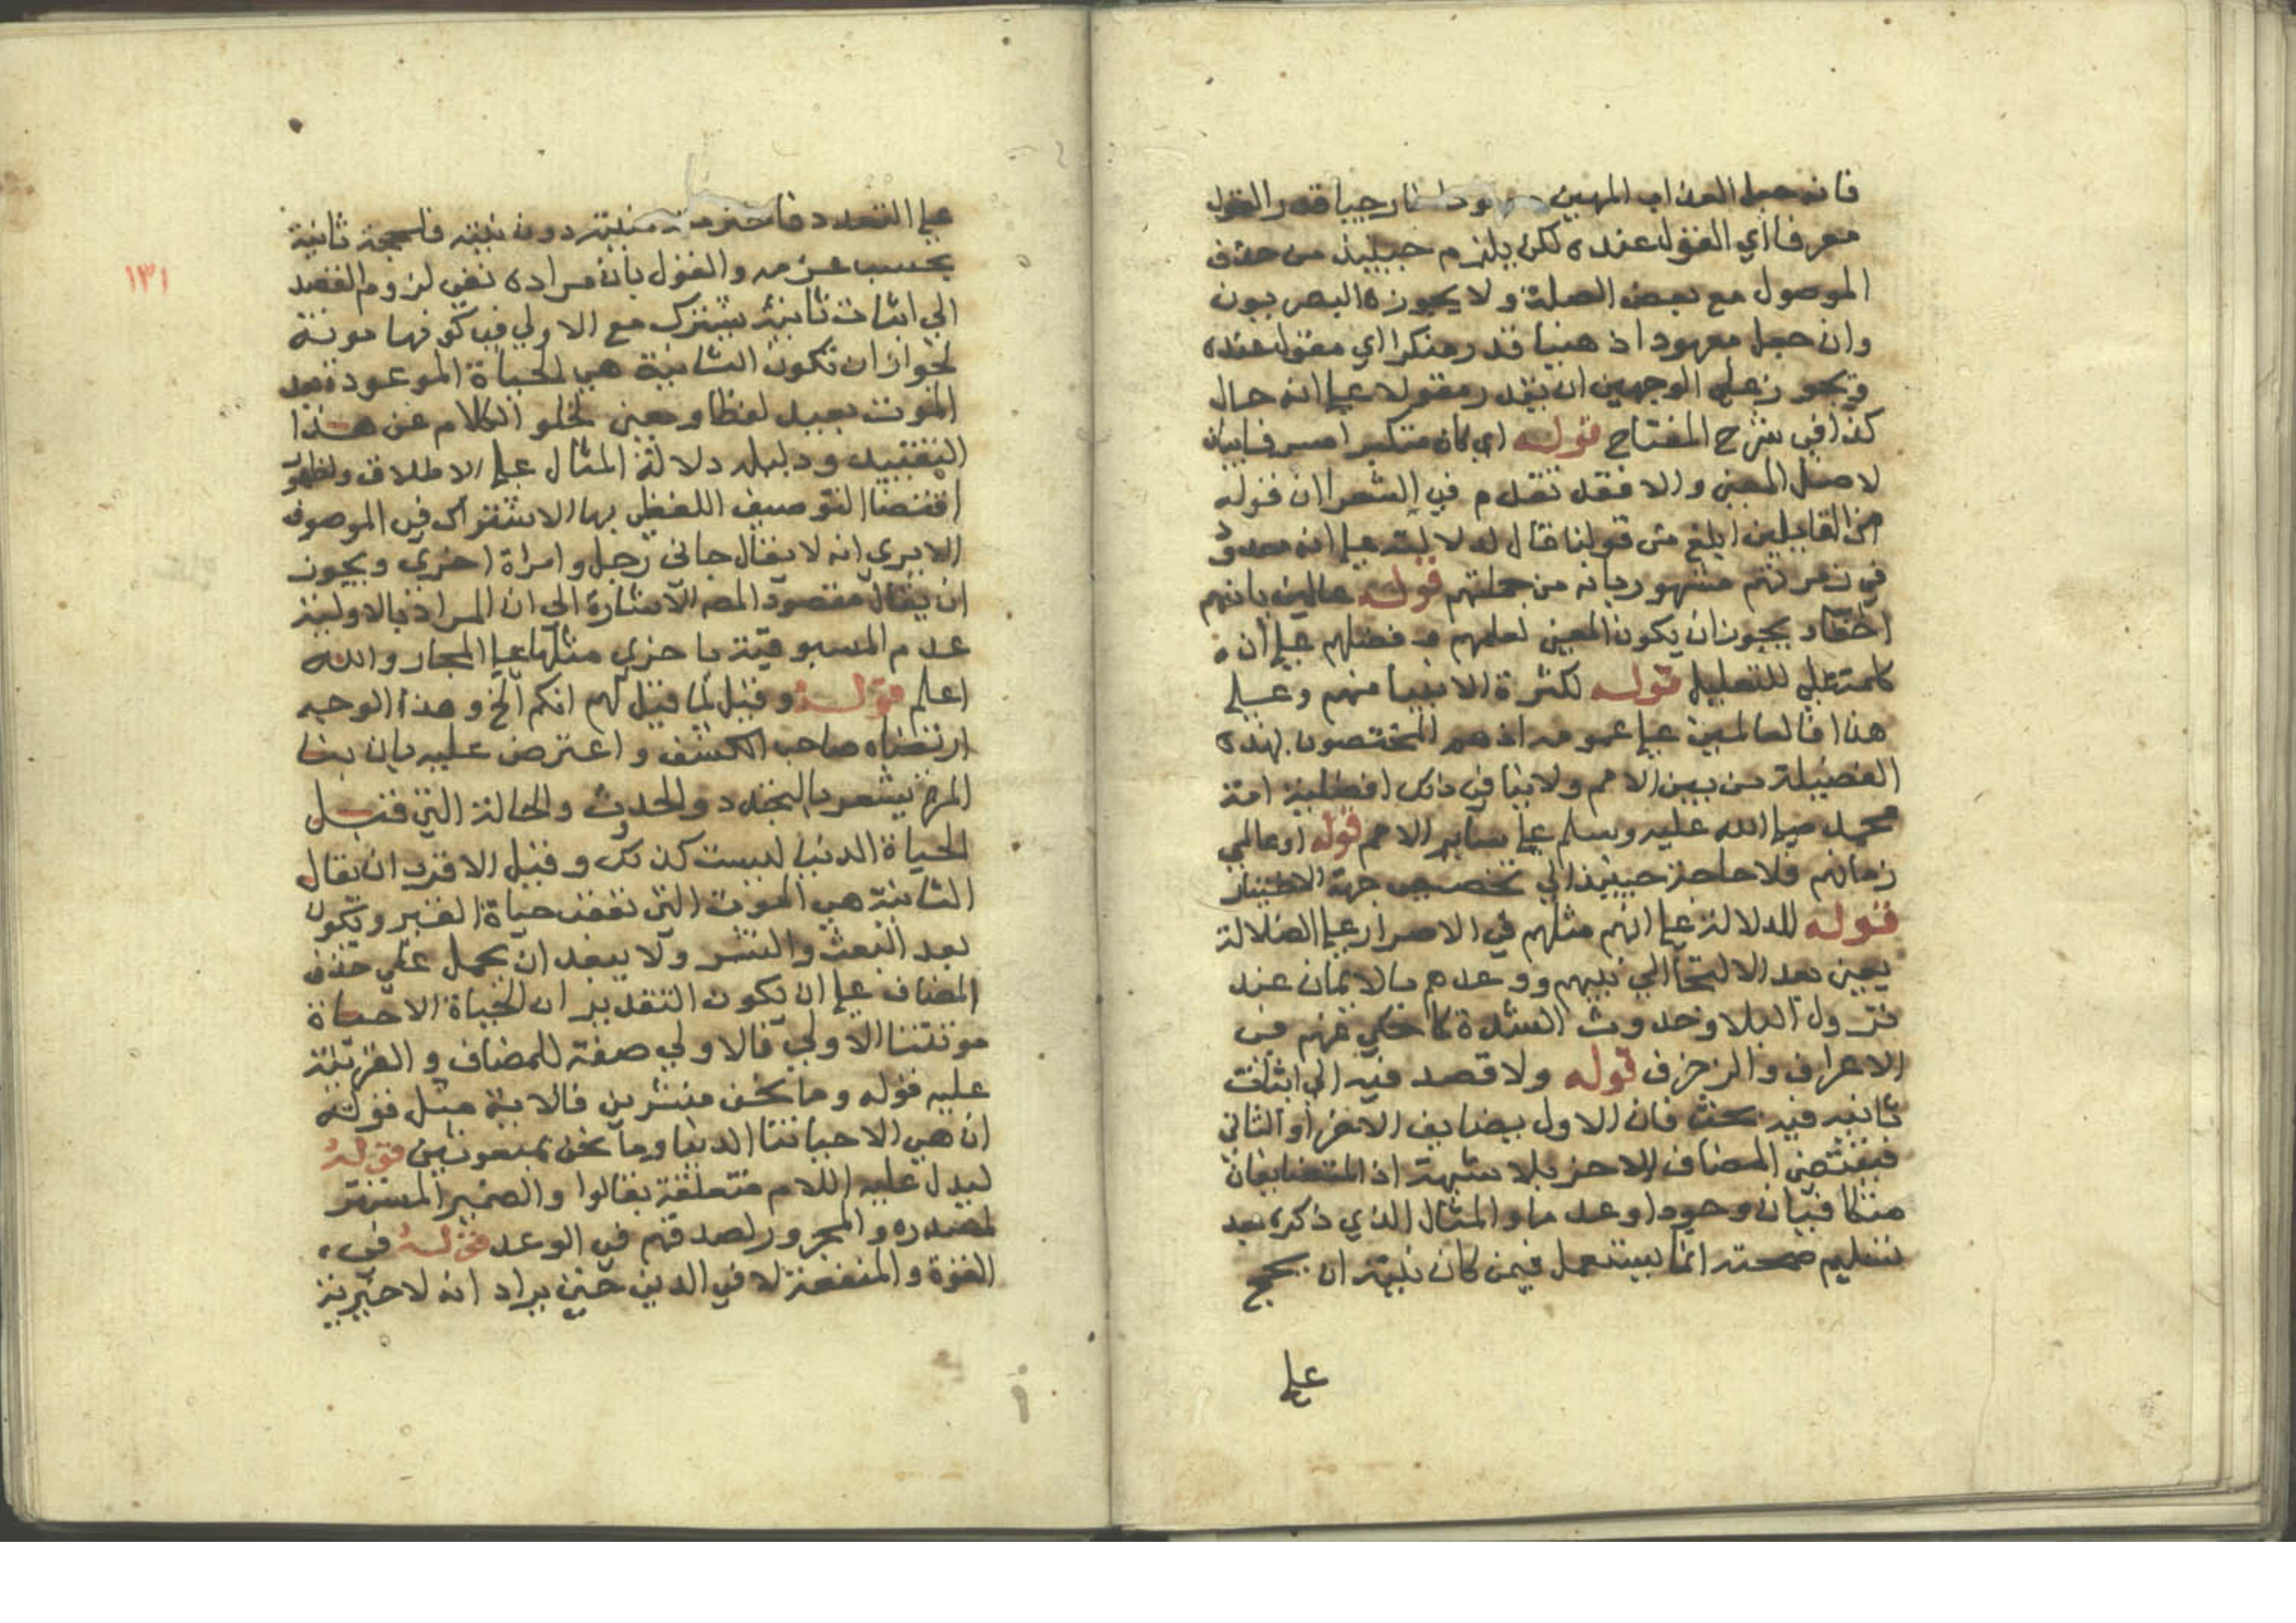 فانه جعل العذاب المهين خارجيا قدر القول
معرفا اي المقول عنده لكن يلزم حينيذ من حذف
الموصول مع بعض الصلة ولا يجوزه البصريون
وان جعل معهودا ذهنيا قدر منكرا اي مقول عنده
ويجوز على الوجهين ان يقدر مقولا على انه حال
كذا في شرح المفتاح قوله اي كان متكبرا مسرفا بيان
لاصل المعنى والا فقد تقدم في الشعرا ان قوله
من القايلين ابلغ من قولنا قال لدلالته على انه معدود
في زمرتهم مشهور بانه من جملتهم قوله عالمين بانهم
احقاء يجوز ان يكون المعنى لعلمهم وفضلهم على ان
كلمة على للتعليل قوله لكثرة الانبيا منهم وعلى
هذا فالعالمين على عمومه اذ هم المختصون بهذه
الفضيلة من بين الامم ولا ينافي ذلك افضلية امة
محمد صلى الله عليه وسلم على ساير الامم قوله او عالمي
زمانهم فلا حاجة حينيذ الي تخصيص جهة الاختيار
قوله للدلالة على انهم مثلهم في الاصرار على الضلالة
يعني بعد الالتجا الي نبيهم ووعدهم بالايمان عند
نزول البلا وحدوث الشدة كما حكي عنهم في
الاعراف والزخرف قوله ولا قصد فيه الي اثبات
ثانيه فيه بحث فان الاول يضايف الاخر او الثاني
فيقتضي المضاف الاخر بلا شبهة اذ المتضايفان
متكافيان وجودا وعدما والمثال الذي ذكره بعد
تسليم صحته انما يستعمل فيمن كان نيته ان يحج
على
١٣١
على التعدد فاخترمته منيته دون نيته فلحجه ثانية
بحسب عزمه والقول بان مراده نفي لزوم القصد
الي اثبات ثانية يشترك مع الاولي في كونها موتة
لجواز ان تكون الثانية هي الحياة الموعود بعد
الموت بعيد لفظا ومعنى لخلو الكلام عن هذا
التقييد ودليله دلالة المثال على الاطلاق ولظهور
اقتضا التوصيف اللفظي بها الاشتراك في الموصوف
الا يري انه لا يقال جاني رجل وامراة اخري ويجوز
ان يقال مقصود المصه الاشارة الي ان المراد بالاولية
عدم المسبوقية باخري مثلها على المجاز والله
اعلم قوله وقيل لما قيل لهم انكم الخ وهذا الوجه
ارتضاه صاحب الكشف واعترض عليه بان بنا
المرة يشعر بالتجدد والحدوث والحالة التي قبل
الحياة الدنيا ليست كذلك وقيل الاقرب ان يقال
الثانية هي الموتة التي تعقب حياة القبر وتكون
بعد البعث والنشر ولا يبعد ان يحمل على حذف
المضاف على ان يكون التقدير ان الحياة الا حياة
موتتنا الاولي فالاولي صفة للمضاف والقرينة
عليه قوله وما نحن منشرين فالاية مثل قوله
ان هي الا حياتنا الدنيا وما نحن بمبعوثين قوله
ليدل عليه اللام متعلقة بقالوا والضمير المستتر
لمصدره والمجرور لصدقهم في الوعد قوله في
القوة والمنفعة لا في الدين حتى يراد انه لا خيرية